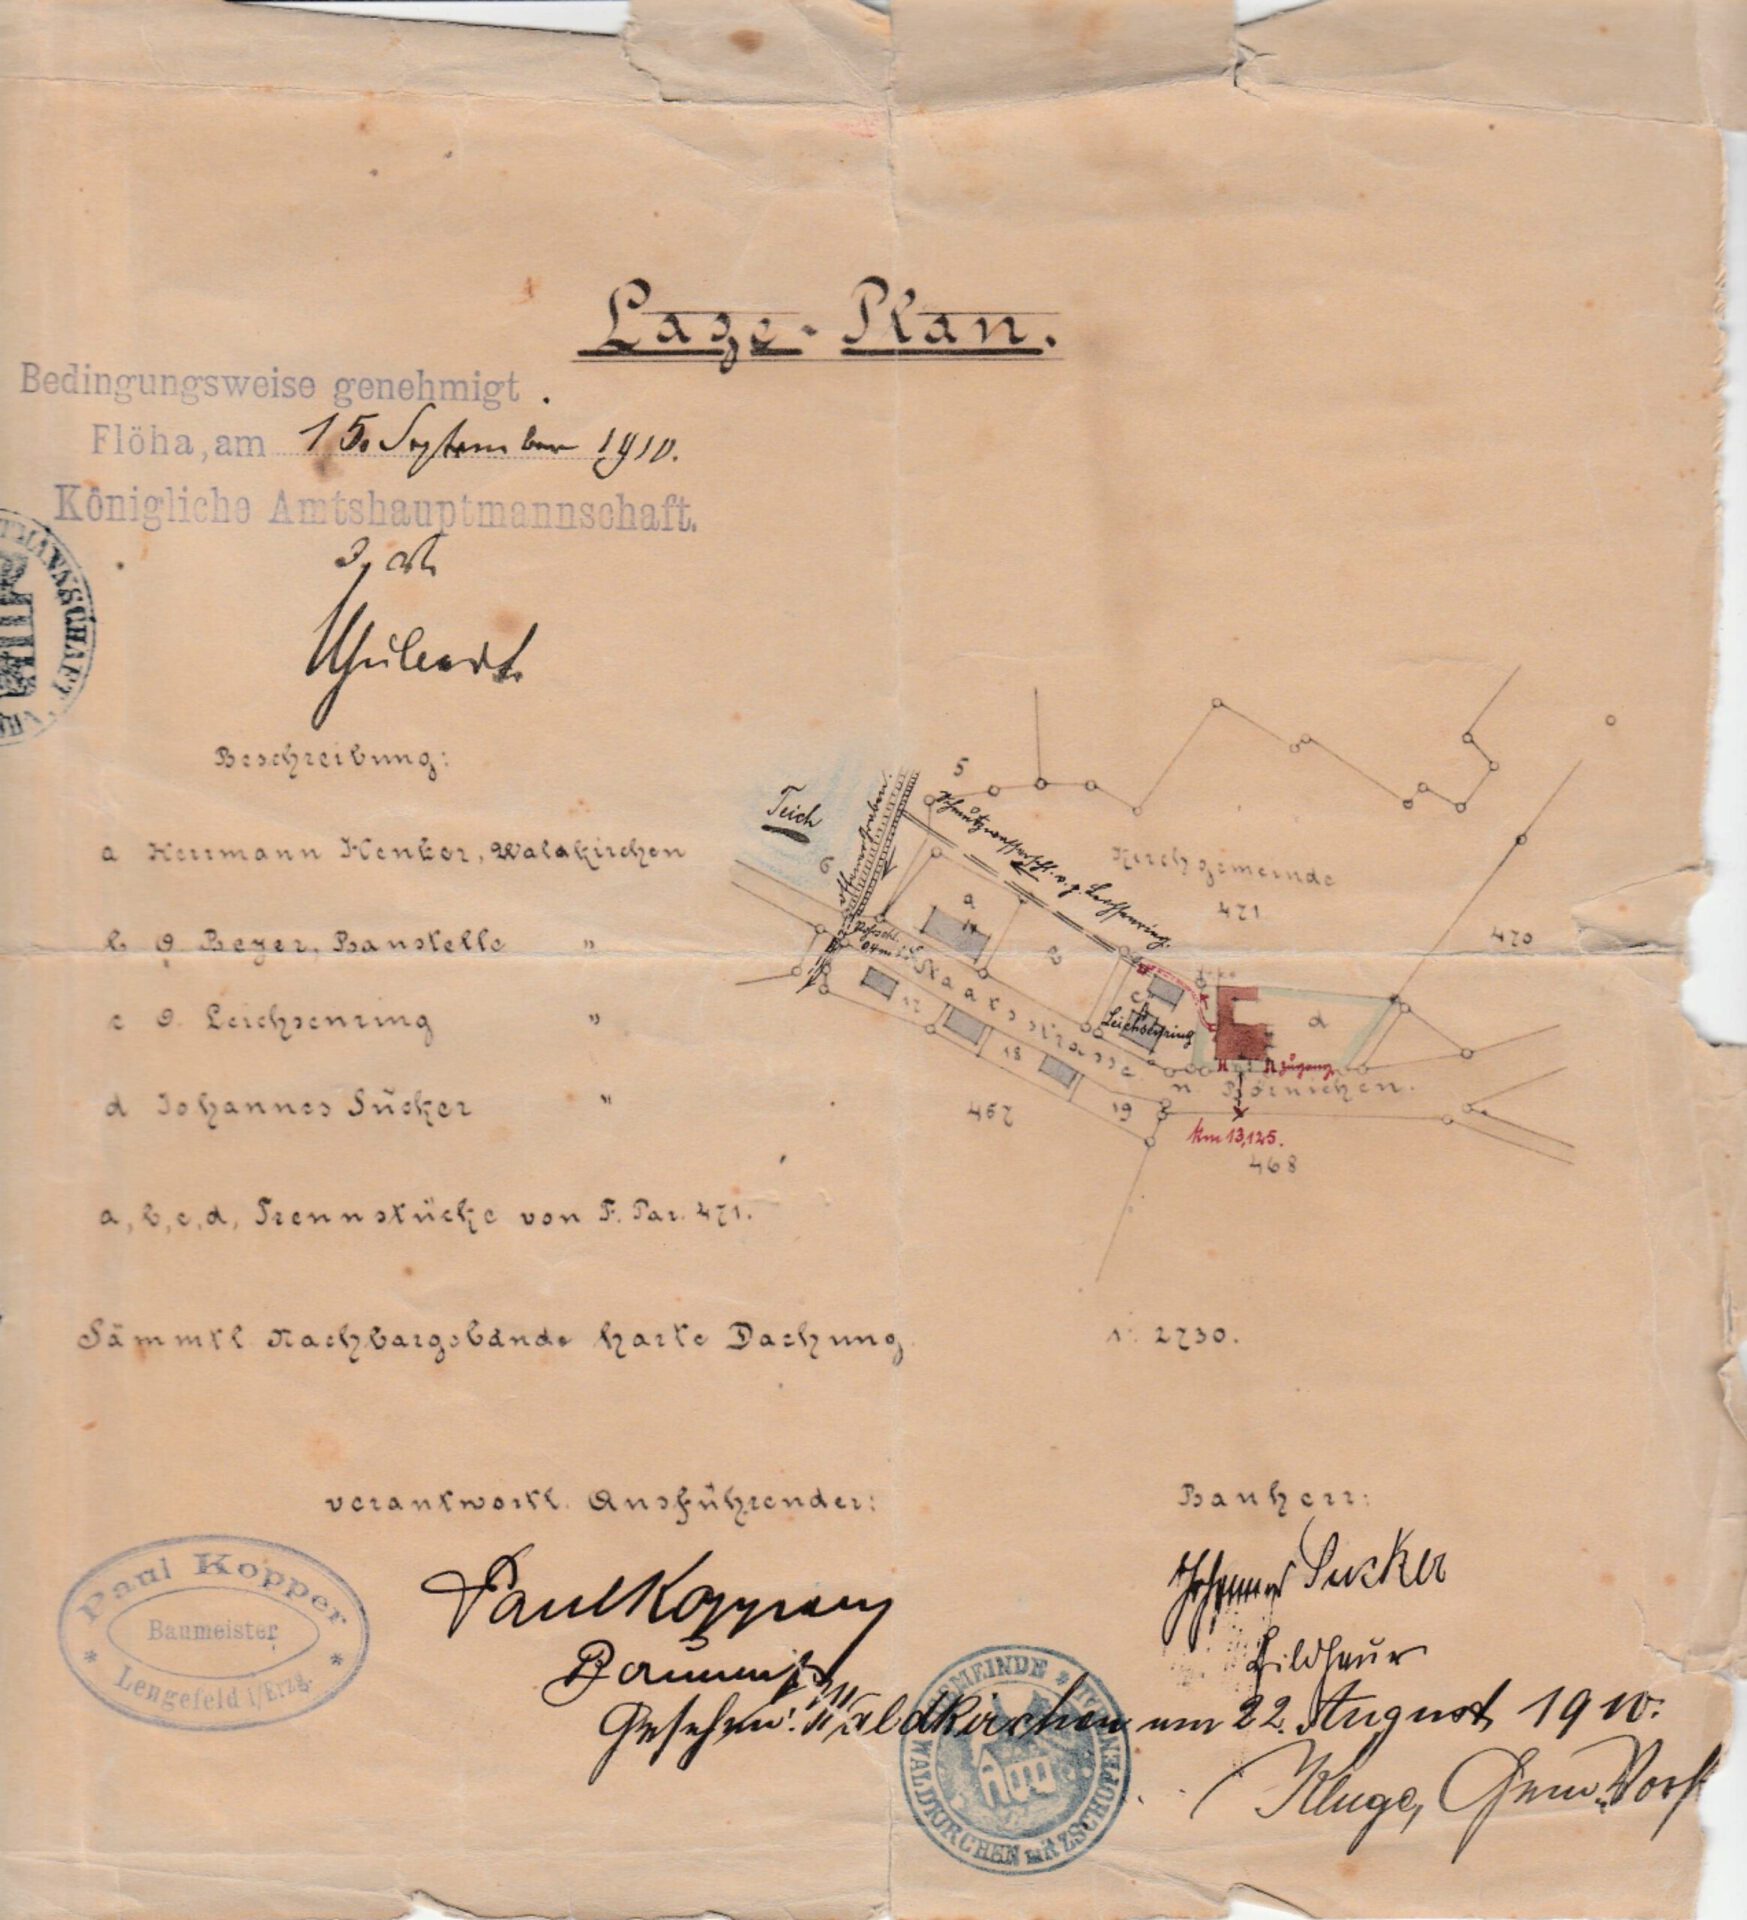 Lage-Plan.
Bedingungsweise genehmigt.
Flöha, am 15. September 1910.
Königliche Amtshauptmannschaft.
Beschreibung:
a Herrmann Henker, Waldkirchen
b O. Beyer, Baustelle "
c O. Leichsenring "
d Johannes Sücker "
a, b, c, d, Trennstücke von F. Par. 471.
Sämmtl. Nachbargebäude harte Dachung.
1: 2730.
Teich
5
6
Kirchgemeinde
471
470
a
14
b
c
Leichsenring
d
Staatsstrasse
n. Börnichen.
Zugang
17
18
19
467
km 13,125.
468
verantwortl. Ausführender:
Bauherr:
Paul Kopper
Baumeister
Lengefeld i/Erzg.
Paul Kopper
Baumstr.
Johannes Sucker
Bildhauer
Gesehen: Waldkirchen am 22. August 1910.
Kluge, Gem. Vorst
GEMEINDE
WALDKIRCHEN
ZSCHOPENTHAL